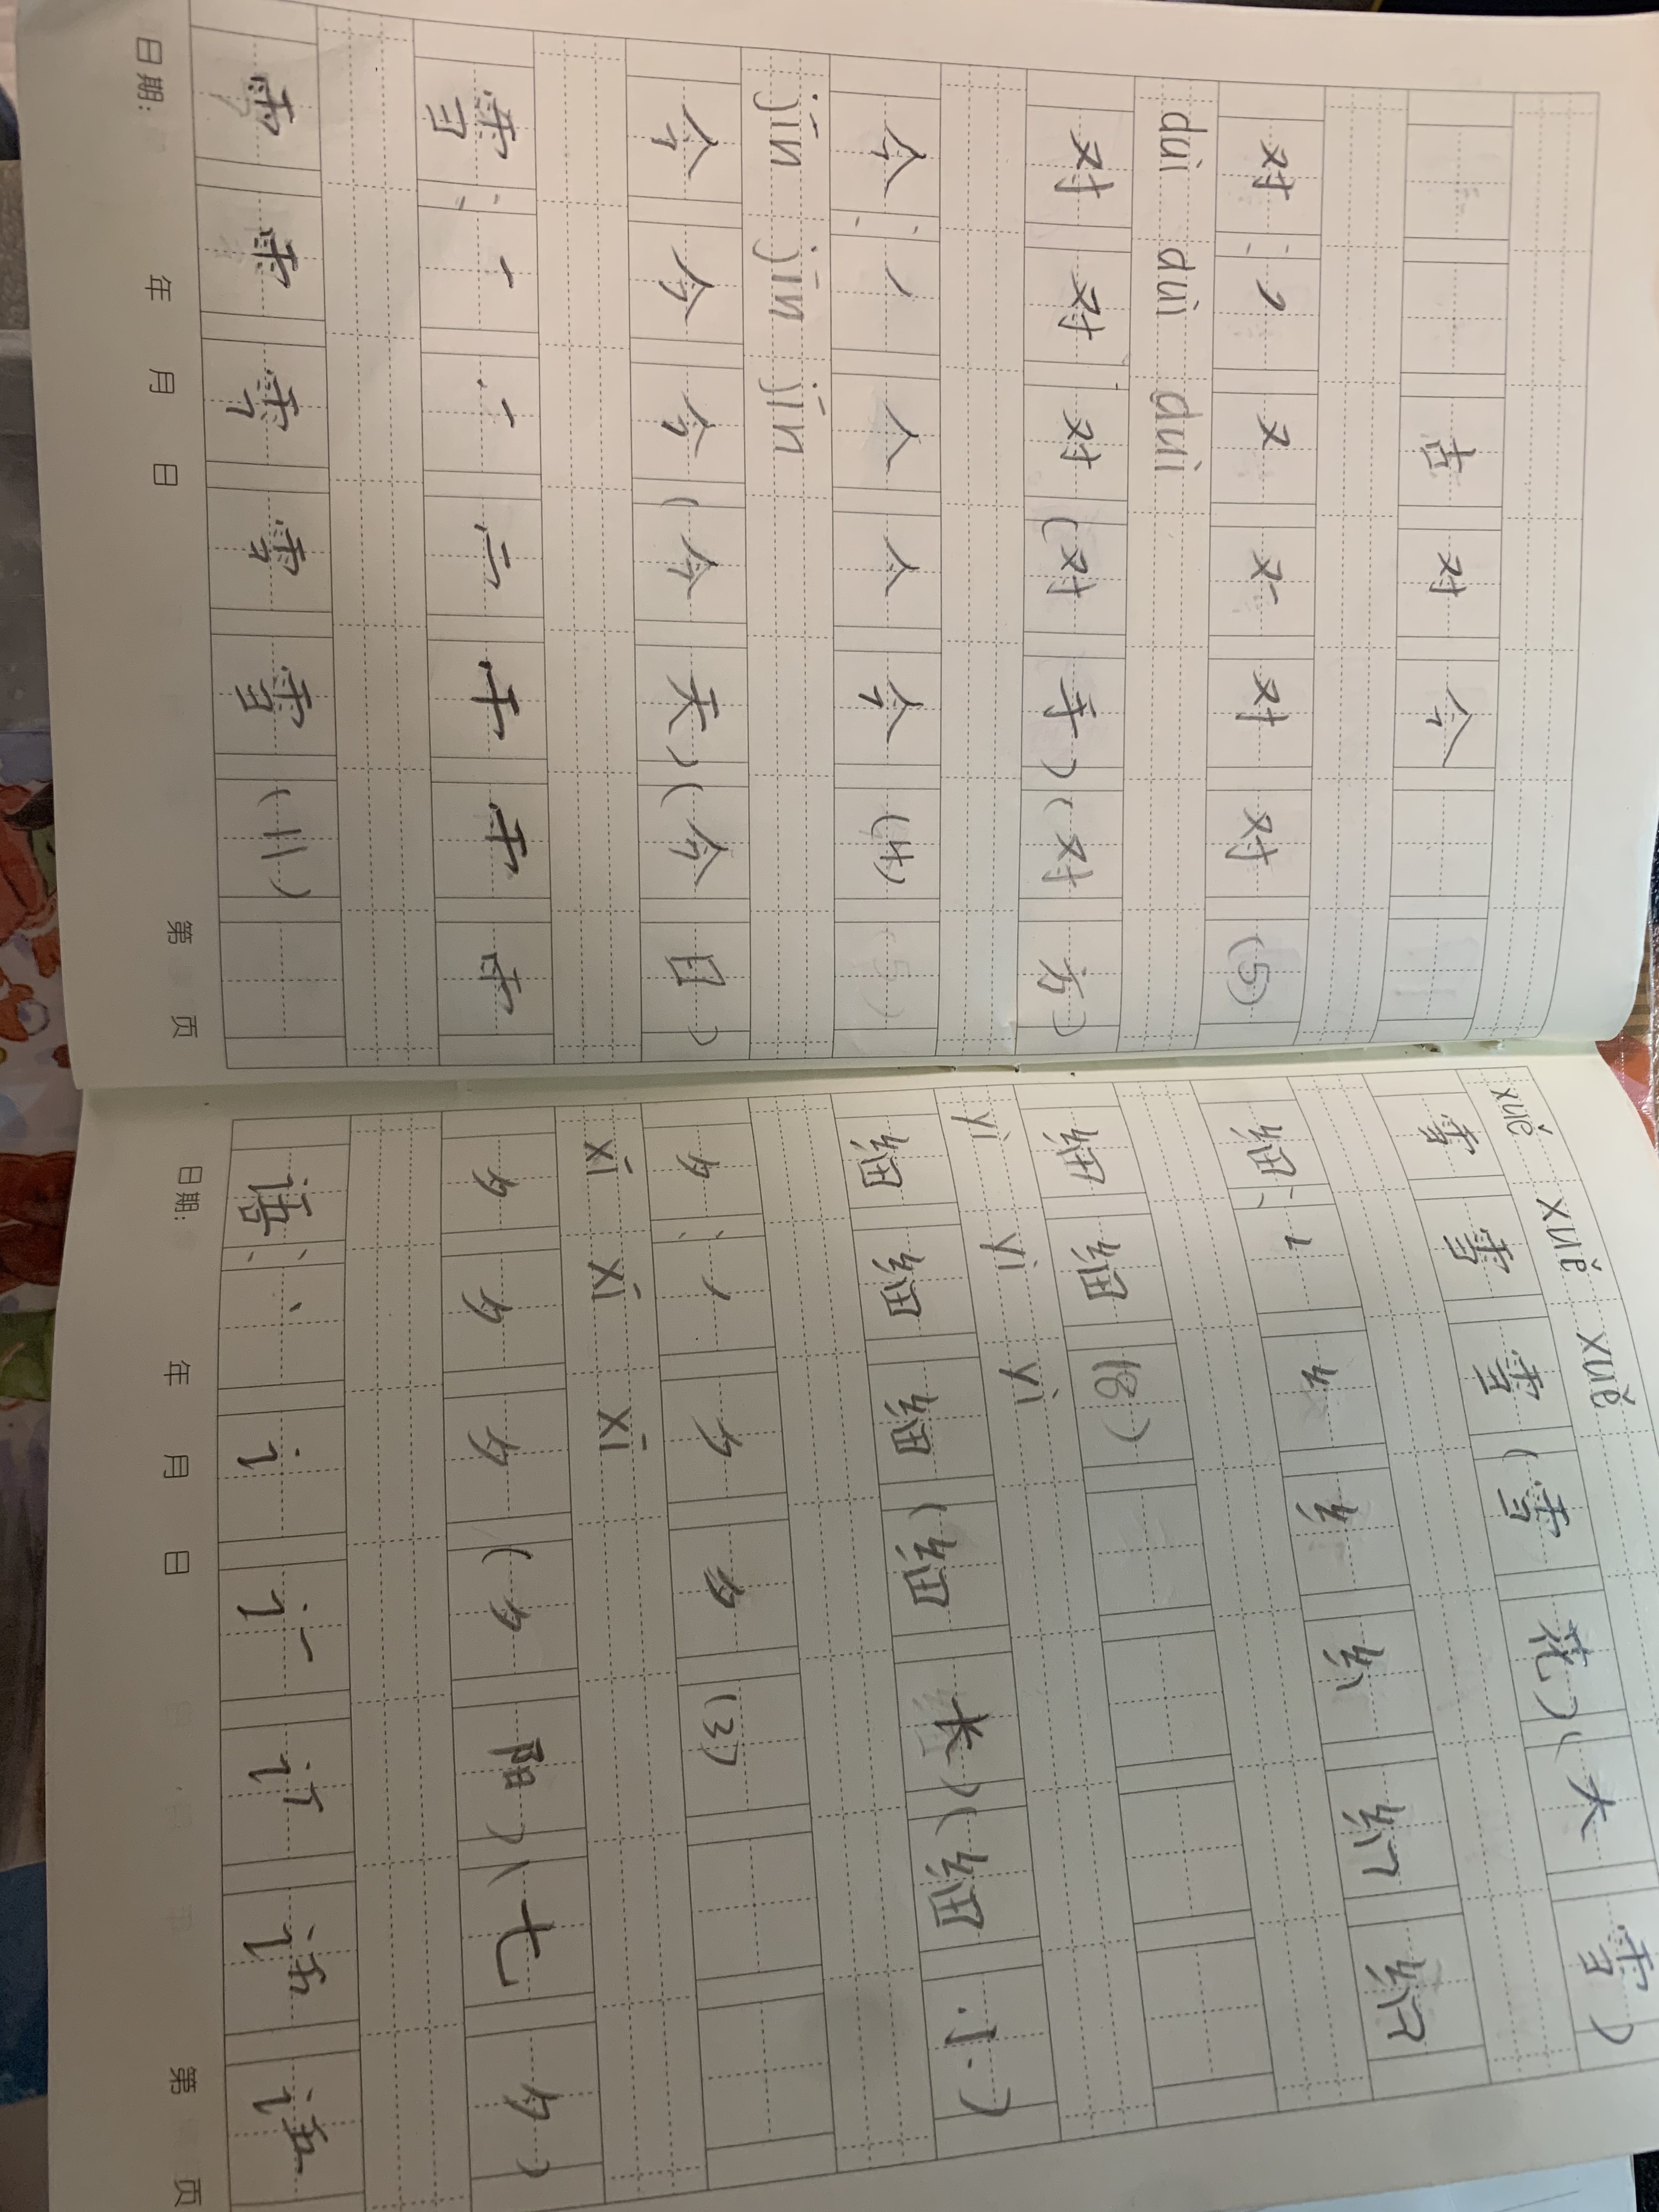 古 对 今
对: ㇇ 又 对 对 (5)
duì duì duì
对 对 对 (对 手)(对 方)
今: ノ 人 亼 今 (4)
jīn jīn jīn
今 今 今 (今 天)(今 日)
雪: 一
雪 (11)
日期: 年 月 日 第 页
xuě xuě xuě
雪 雪 雪 (雪 花)(大 雪)
细: 纟
细 细 (8)
yì yì yì
细 细 细 (细 长)(细 小)
夕: ノ ク 夕 (3)
xī xī xī
夕 夕 夕 (夕 阳)(七 夕)
语: 丶 讠
日期: 年 月 日 第 页